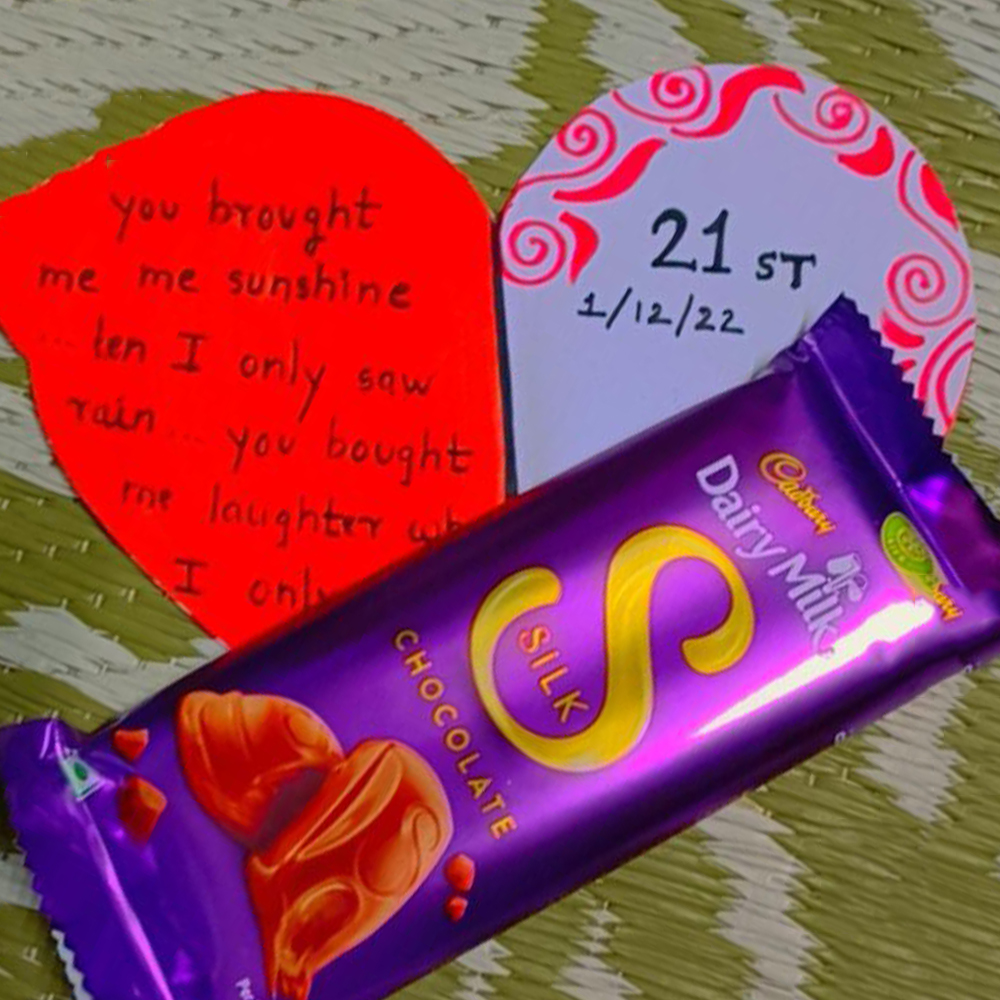 you brought
me me sunshine
ten I only saw
rain ... you bought
me laughter
I only
21 ST
1/12/22
Cadbury
Dairy Milk
SILK
CHOCOLATE